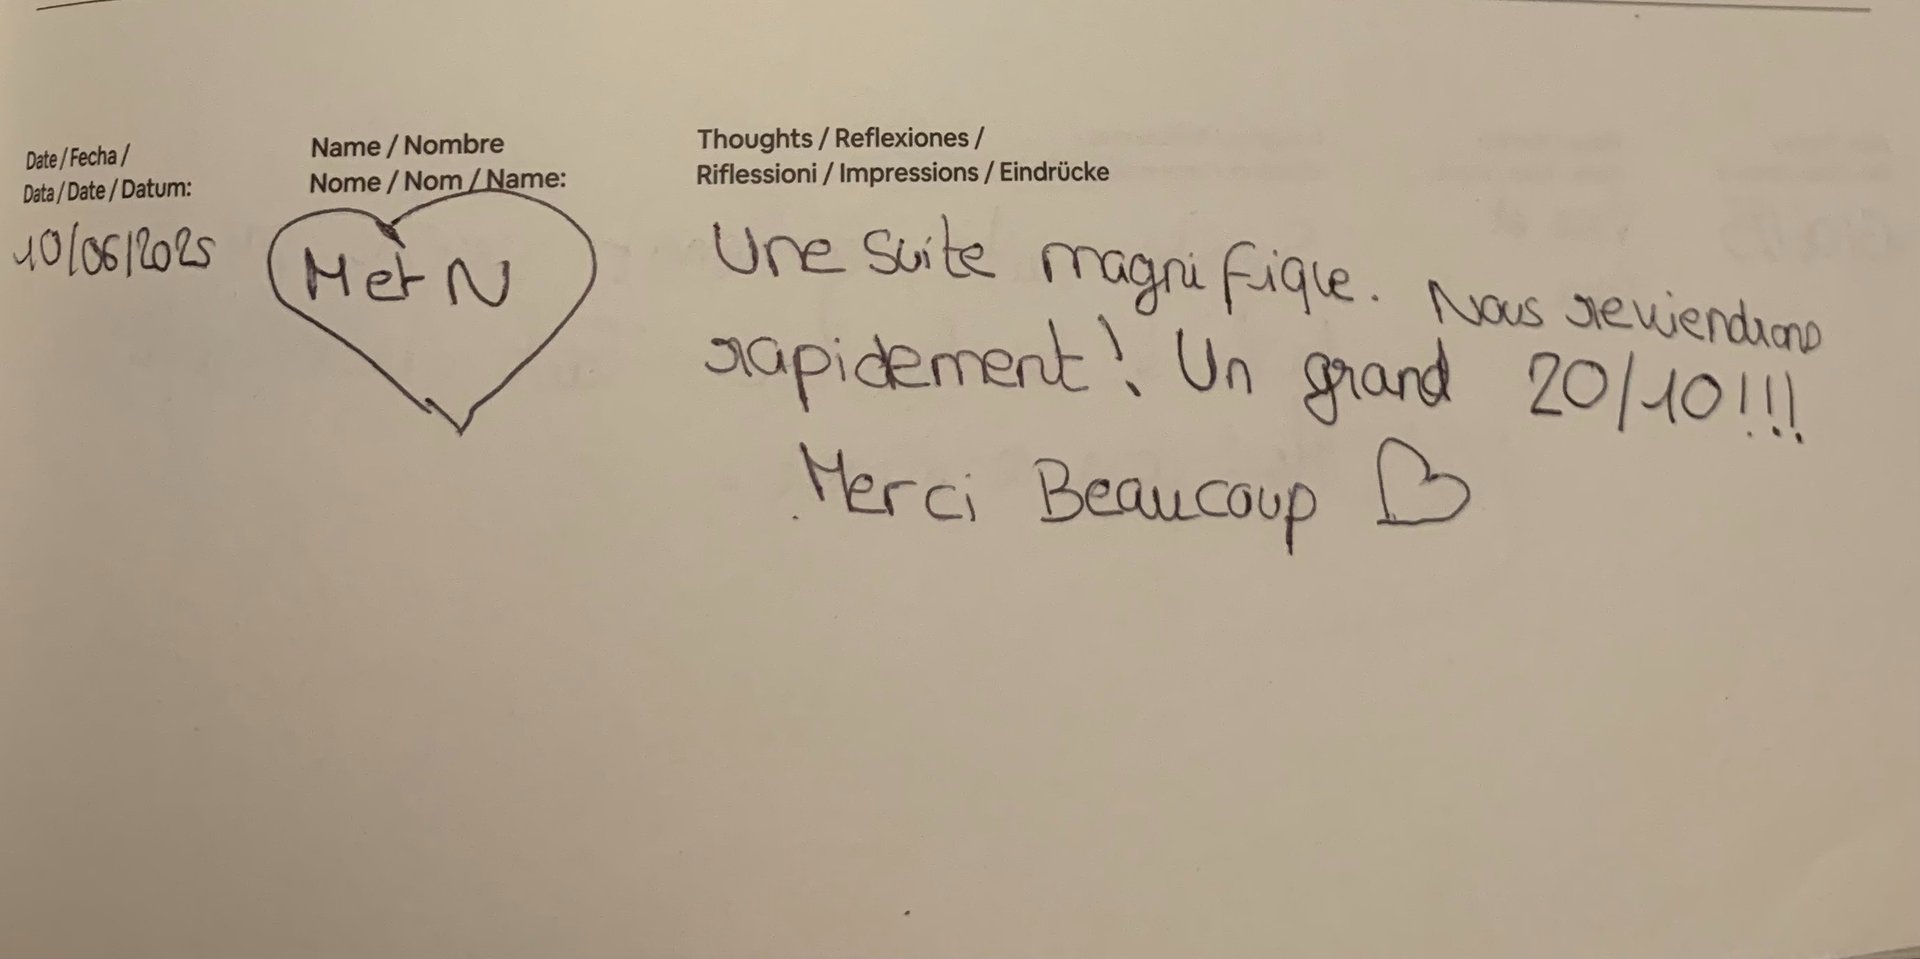 Date / Fecha /
Data / Date / Datum:
10/06/2025
Name / Nombre
Nome / Nom / Name:
M et N
Thoughts / Reflexiones /
Riflessioni / Impressions / Eindrücke
Une suite magnifique. Nous reviendrons
rapidement! Un grand 20/10!!!
Merci Beaucoup